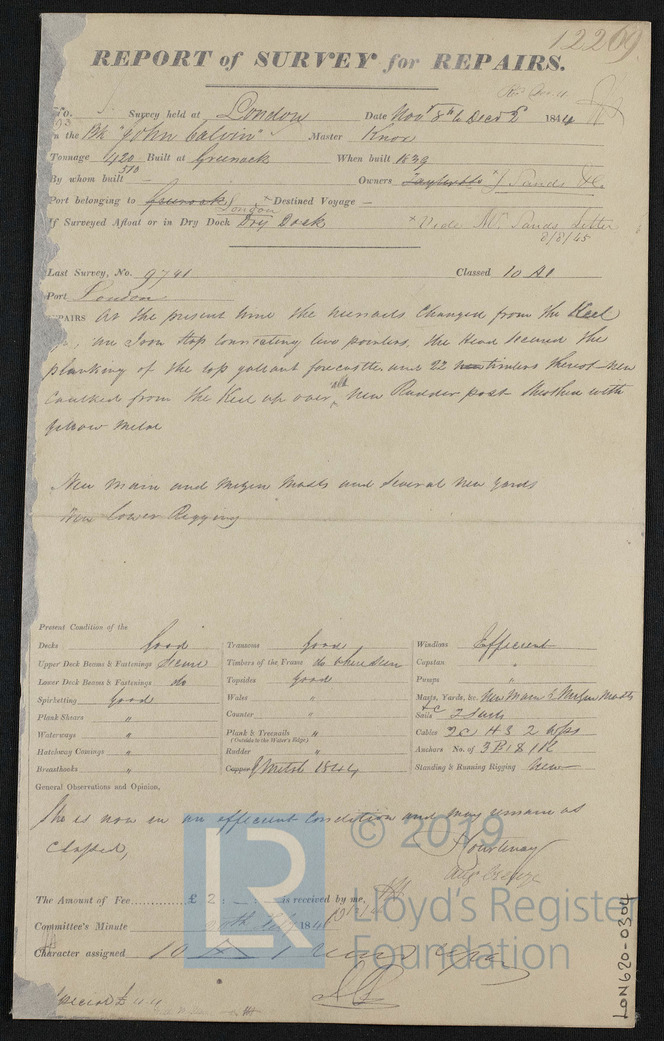 12209
REPORT of SURVEY for REPAIRS.
No. Survey held at London Date Novr 8th to Decr 1844
on the Bk "John Calvin" Master Knox
Tonnage 420 Built at Greenock When built 1839
510
By whom built Owners J Sands & Co.
Port belonging to Greenock × Destined Voyage —
London
If Surveyed Afloat or in Dry Dock Dry Dock × Vide Mr Sands Letter
8/2/45
Last Survey, No. 9741 Classed 10 A1
Port London
REPAIRS At the present time the Changed from the Keel
Iron Strap connecting two pointers, the Head secured the
planking of the top gallant forecastle and 22 timbers thereof new
Caulked from the Keel up over all New Rudder post Sheathed with
Yellow Metal
New Main and Mizen Masts and several new yards
New Lower Rigging
Present Condition of the
Decks Good
Upper Deck Beams & Fastenings Secure
Lower Deck Beams & Fastenings do
Spirketting Good
Plank Shears "
Waterways "
Hatchway Comings "
Breasthooks "
Transoms Good
Timbers of the Frame do where seen
Topsides Good
Wales "
Counter "
Plank & Treenails "
(Outside to the Water's Edge)
Rudder "
Copper Y Metal 1844
Windlass Efficient
Capstan "
Pumps "
Masts, Yards, &c. New Main & Mizen Masts
&c
Sails 2 Suits
Cables 2 C 1 H S 2
Anchors No. of 3 B 1 S 1 K
Standing & Running Rigging New
General Observations and Opinion,
She is now in an efficient Condition and may remain as
Classed,
Courtenay
The Amount of Fee............£ 2 : - : is received by me,
Committee's Minute 184
Character assigned 10 A 1
© 2019
Lloyd's Register
Foundation
LR
LON620-0304